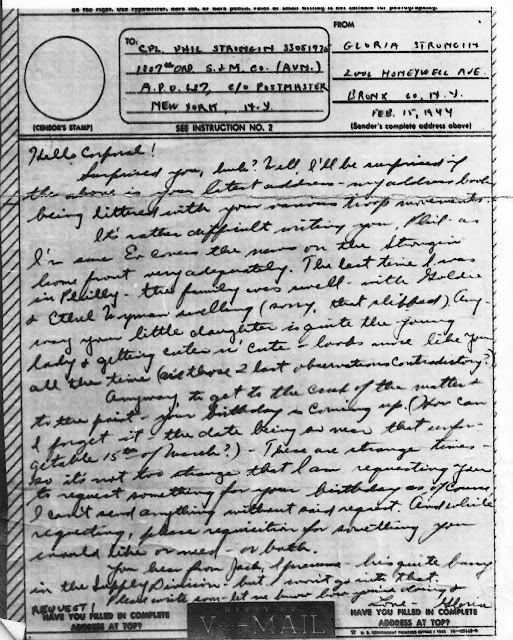 on the right. Use typewriter, dark ink, or dark pencil. Faint or small writing is not suitable for photographing.
TO:
CPL. PHIL STRONGIN 33051970
1807th ORD. S.&M. CO. (AVN.)
A.P.O. 637, C/O POSTMASTER
NEW YORK, N.Y.
FROM
GLORIA STRONGIN
2006 HONEYWELL AVE.
BRONX 60, N.Y.
FEB. 15, 1944
(CENSOR'S STAMP)
SEE INSTRUCTION NO. 2
(Sender's complete address above)
Hello Corporal!
Surprised you, huh? Well, I'll be surprised if
the above is your latest address - my address book
being littered with your various troop movements.
It's rather difficult writing you, Phil - as
I'm sure Ev covers the news on the Strongin
home front very adequately. The last time I was
in Philly - the family was swell - with Goldie
& Ethel Wyman swelling (sorry, that slipped) Any-
way your little daughter is quite the young
lady & getting cuter n' cute - looks more like you
all the time (are those 2 last observations contradictory?)
Anyway to get to the crux of the matter &
to the point - your birthday is coming up. (How can
I forget it - the date being so near that unfor-
getable 15th of March?) - These are strange times -
so it's not too strange that I am requesting you
to request something for your birthday as of course
I can't send anything without said request. And while
requesting, please requisition for something you
would like or need - or both.
You hear from Jack, I presume - he's quite busy
in the Supply Division - but I won't go into that.
Please write soon - let me know how you're doing &
REQUEST!
Love - Gloria
HAVE YOU FILLED IN COMPLETE
ADDRESS AT TOP?
V-MAIL
HAVE YOU FILLED IN COMPLETE
ADDRESS AT TOP?